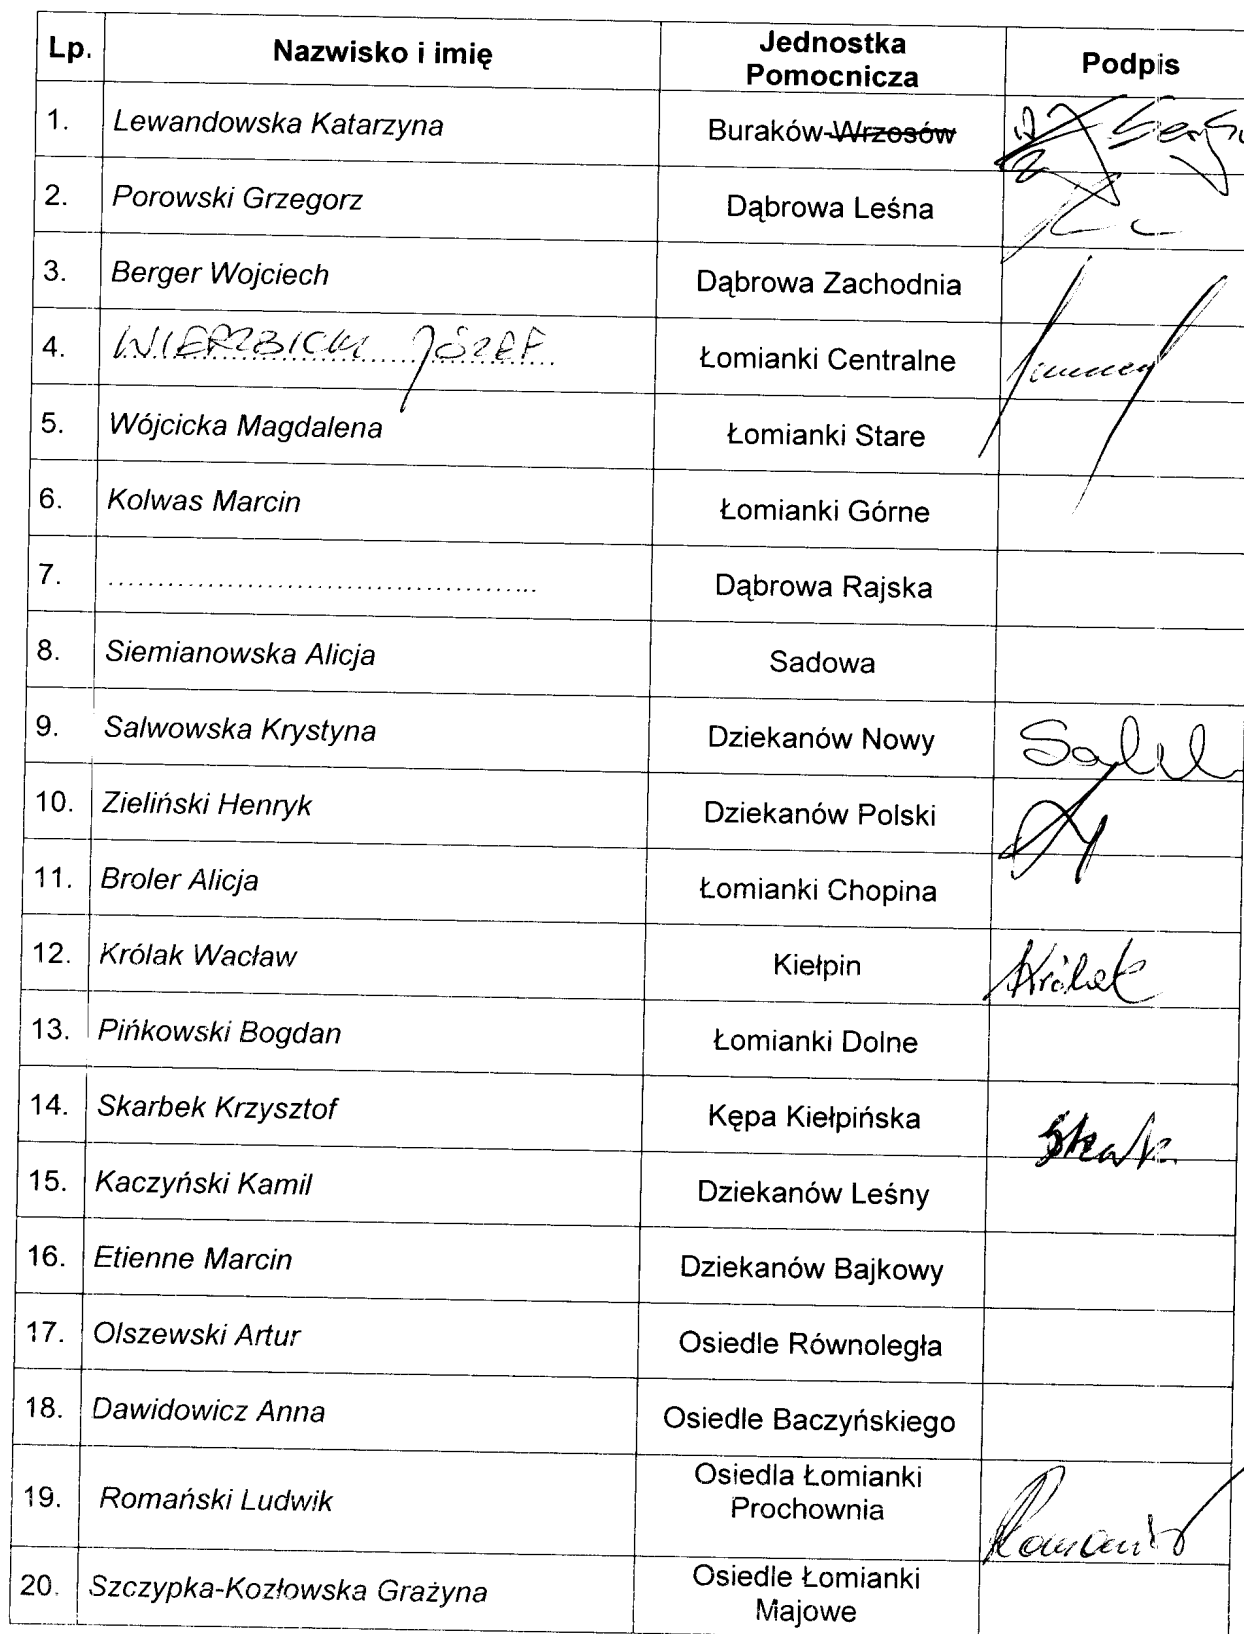 Lp. Nazwisko i imię Jednostka Pomocnicza Podpis
1. Lewandowska Katarzyna Buraków-Wrzosów
2. Porowski Grzegorz Dąbrowa Leśna
3. Berger Wojciech Dąbrowa Zachodnia
4. WIERZBICKI JÓZEF Łomianki Centralne
5. Wójcicka Magdalena Łomianki Stare
6. Kolwas Marcin Łomianki Górne
7. ........................................... Dąbrowa Rajska
8. Siemianowska Alicja Sadowa
9. Salwowska Krystyna Dziekanów Nowy
10. Zieliński Henryk Dziekanów Polski
11. Broler Alicja Łomianki Chopina
12. Królak Wacław Kiełpin Królak
13. Pińkowski Bogdan Łomianki Dolne
14. Skarbek Krzysztof Kępa Kiełpińska
15. Kaczyński Kamil Dziekanów Leśny
16. Etienne Marcin Dziekanów Bajkowy
17. Olszewski Artur Osiedle Równoległa
18. Dawidowicz Anna Osiedle Baczyńskiego
19. Romański Ludwik Osiedla Łomianki Prochownia
20. Szczypka-Kozłowska Grażyna Osiedle Łomianki Majowe